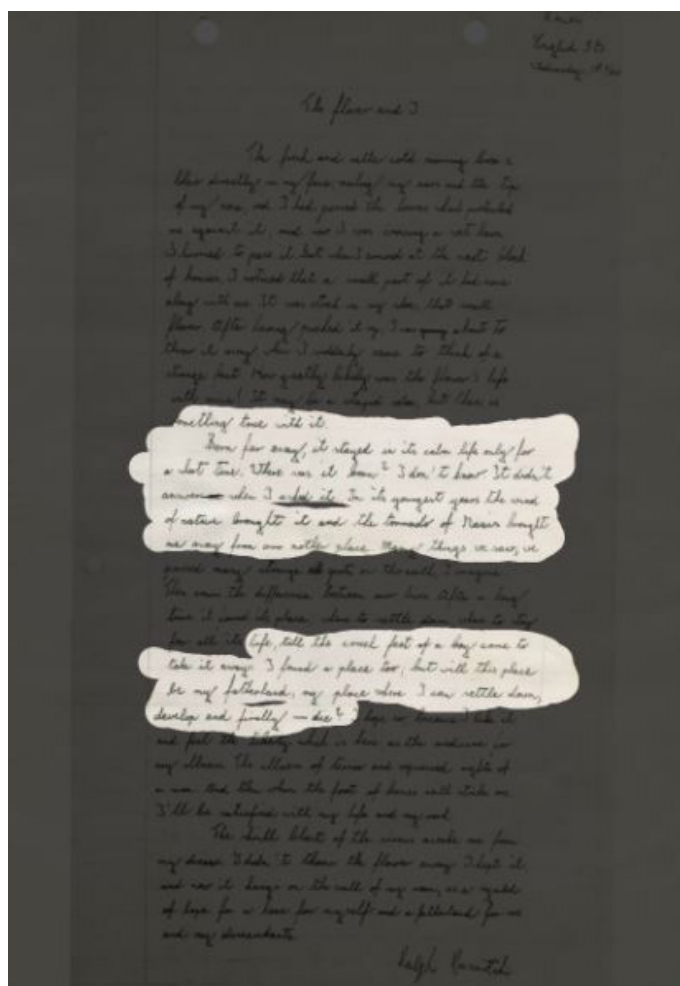 English
The flower and I
The fresh and rather cold morning breeze
blew directly in my face, making my ears and the tip
of my nose red. I had passed the houses which protected
me against it, and now I was crossing a vast lawn.
I hurried to pass it. But when I arrived at the next block
of houses, I noticed that a small part of it had come
along with me. It was stuck in my shoe, that small
flower. After having picked it up, I was going about to
throw it away, when I suddenly came to think of a
strange fact. How greatly likely was the flower's life
with mine! It may be a stupid idea, but there is
something true with it.
Born far away, it stayed in its calm life only for
a short time. Where was it born? I don't know. It didn't
answer when I asked it. In its youngest years the wind
of nature brought it and the tornado of Nazis brought
me away from our native place. Many things we saw, we
passed many strange spots on the earth, I imagine.
Then came the difference between our lives. After a long
time it found its place where to settle down, where to stay
for all its life, till the cruel feet of a boy came to
take it away. I found a place too, but will this place
be my fatherland, my place where I can settle down,
develop and finally — die? I hope so because I like it
and feel the liberty which is here as the medicine for
my illness. The illness of terror and oppressed rights of
a man. And then when the foot of will strike me
I'll be satisfied with my life and my work.
The shrill blast of the awoke me from
my dream. I didn't throw the flower away. I kept it
and now it hangs on the wall of my room, as a symbol
of hope for a home for myself and a fatherland for me
and my descendants.
Ralph